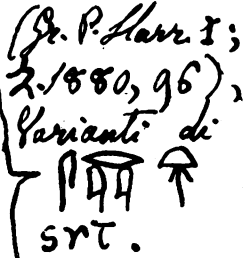 (Gr. P. Harr. I;
Z. 1880, 96),
Varianti di
srt.